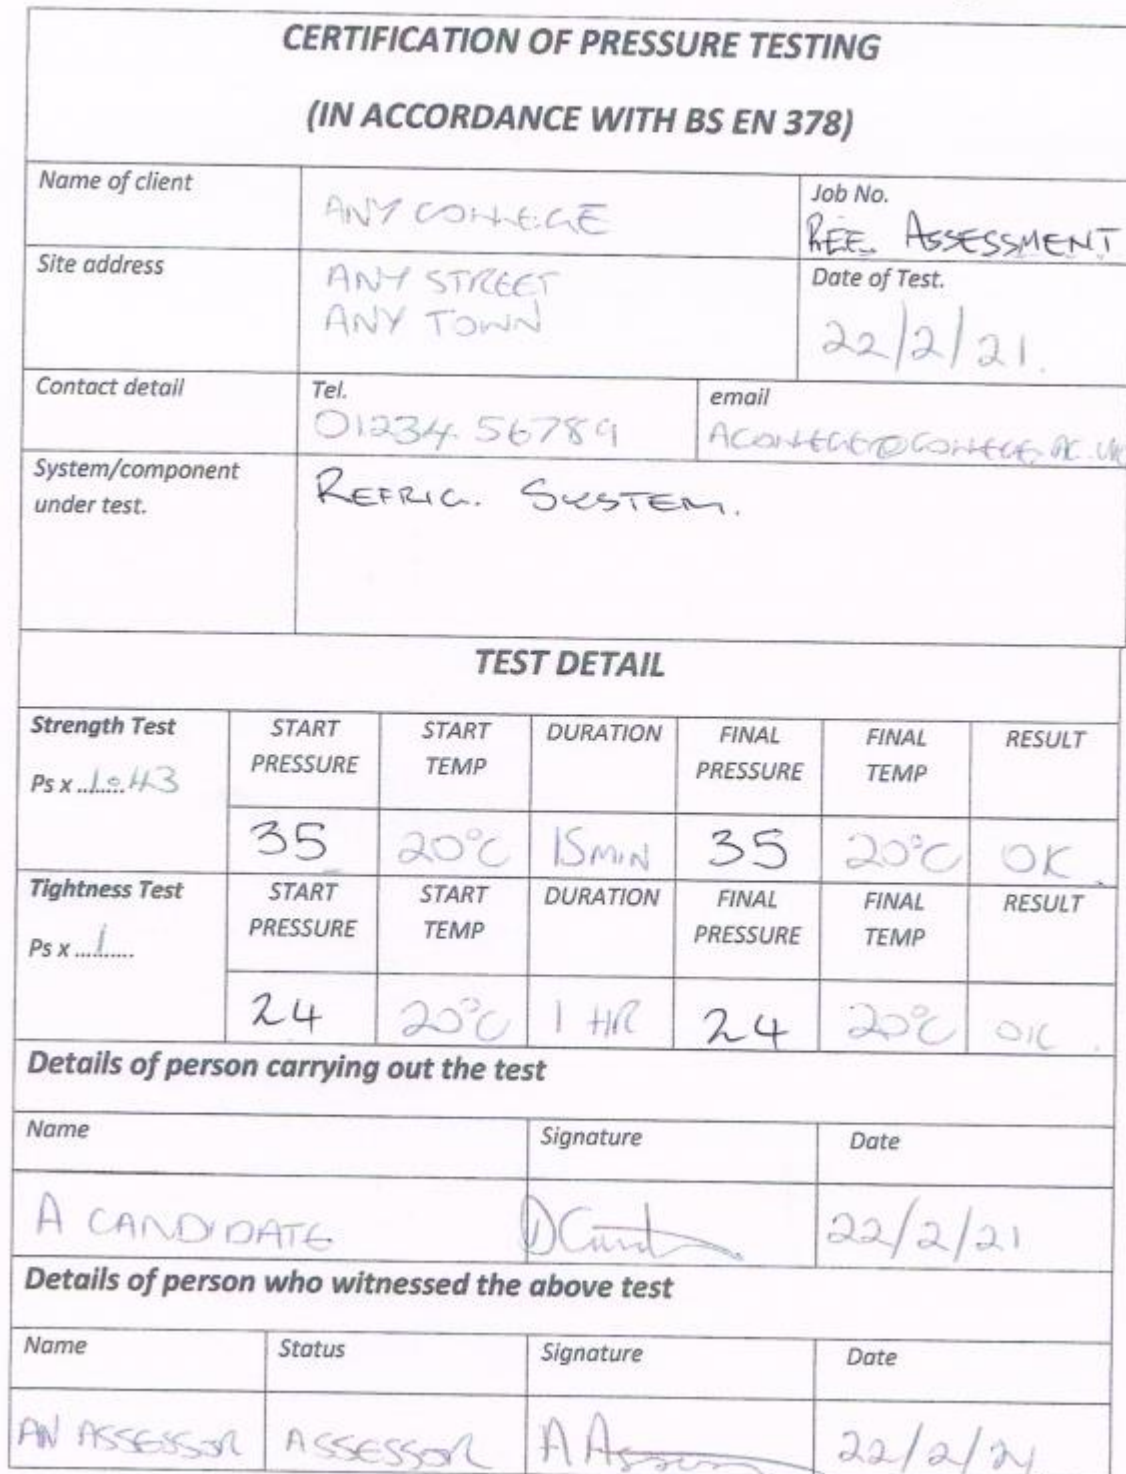 CERTIFICATION OF PRESSURE TESTING
(IN ACCORDANCE WITH BS EN 378)
Name of client
ANY COLLEGE
Job No.
REF. ASSESSMENT
Site address
ANY STREET
ANY TOWN
Date of Test.
22/2/21.
Contact detail
Tel.
01234 56789
email
ACOLLEGE@COLLEGE.AC.UK
System/component
under test.
REFRIG. SYSTEM.
TEST DETAIL
Strength Test
Ps x 1.43
START PRESSURE
START TEMP
DURATION
FINAL PRESSURE
FINAL TEMP
RESULT
35 20°C 15MIN 35 20°C OK
Tightness Test
Ps x 1
START PRESSURE
START TEMP
DURATION
FINAL PRESSURE
FINAL TEMP
RESULT
24 20°C 1 HR 24 20°C OK
Details of person carrying out the test
Name Signature Date
A CANDIDATE 22/2/21
Details of person who witnessed the above test
Name Status Signature Date
AN ASSESSOR ASSESSOR 22/2/21